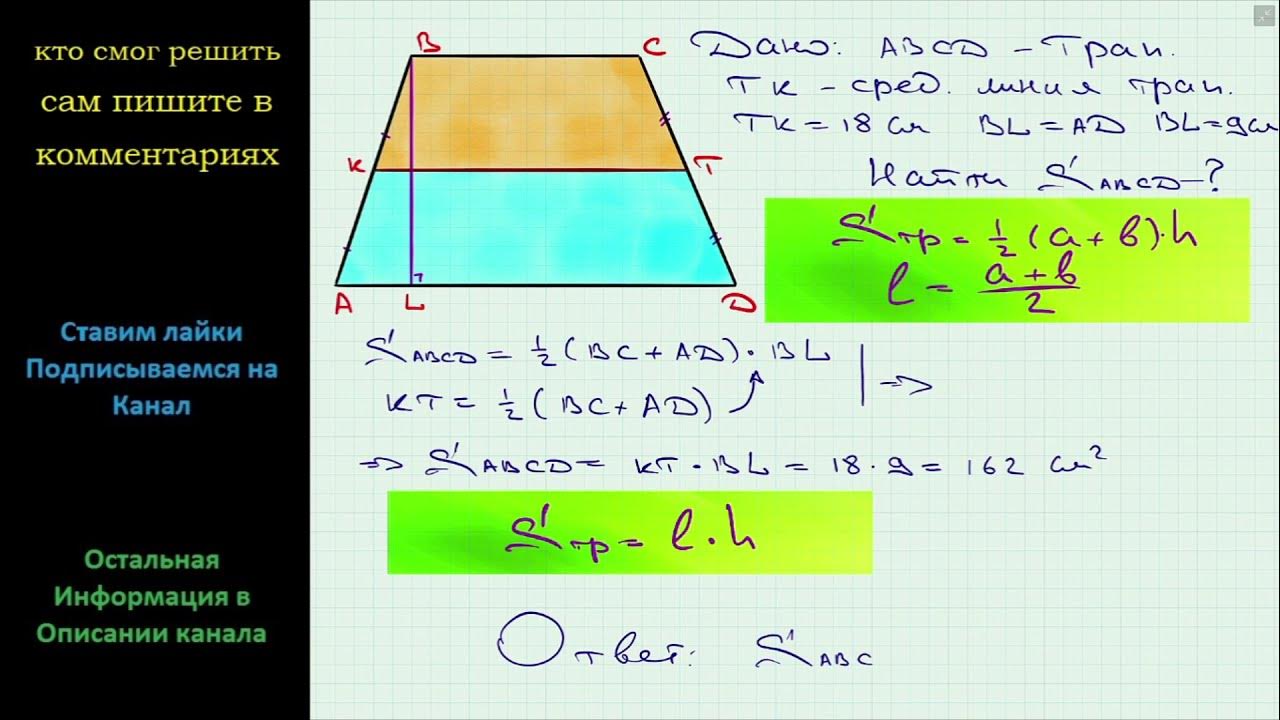 кто смог решить
сам пишите в
комментариях
Ставим лайки
Подписываемся на
Канал
Остальная
Информация в
Описании канала
B
C
K
T
A
L
D
Дано: ABCD – Трап.
ТК – сред. линия трап.
ТК = 18 см BL = AD BL = 9см
Найти S ABCD – ?
S тр = 1/2 (a + b) · h
l = (a + b)/2
S ABCD = 1/2 (BC + AD) · BL
KT = 1/2 (BC + AD)
⇒
⇒ S ABCD = KT · BL = 18 · 9 = 162 см²
S тр = l · h
Ответ: S ABC